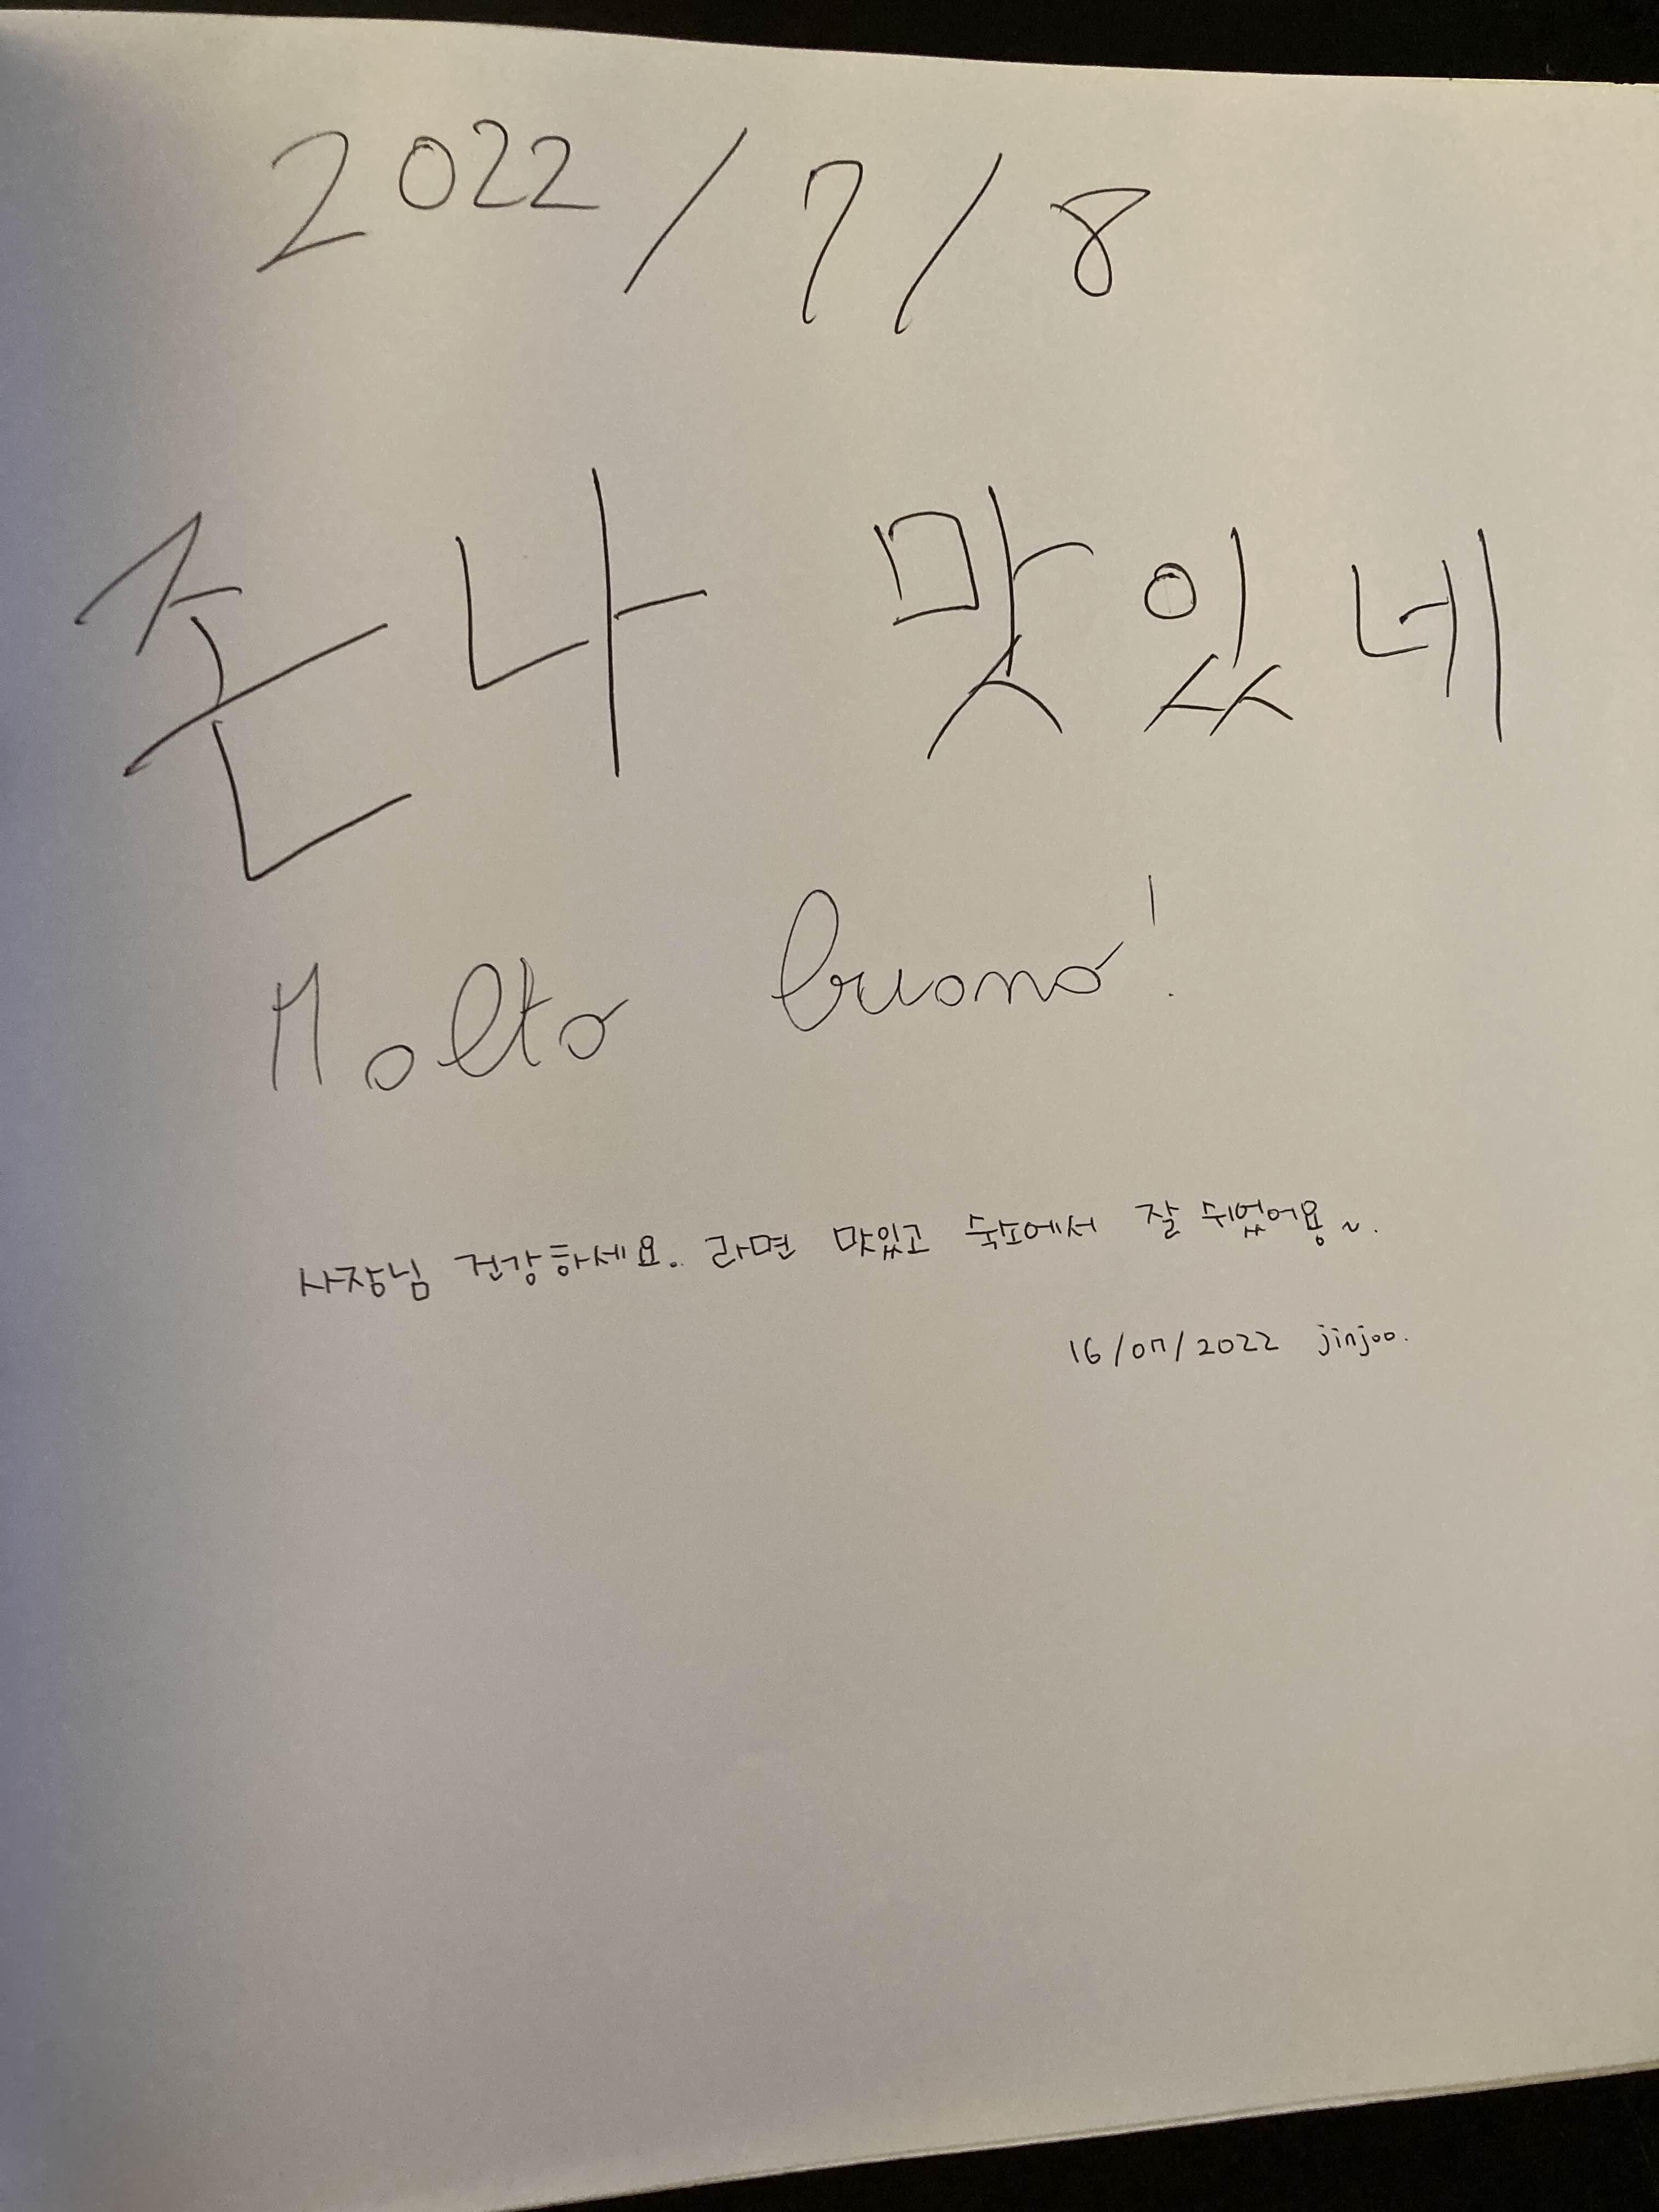 2022/7/8
존나 맛있네
Molto buono!
사장님 건강하세요. 라면 맛있고 숙소에서 잘 쉬었어용~.
16/07/2022 jinjoo.